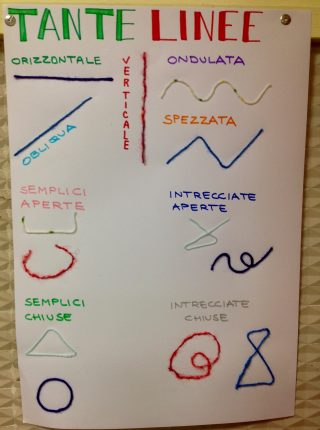 TANTE LINEE
ORIZZONTALE
VERTICALE
ONDULATA
OBLIQUA
SPEZZATA
SEMPLICI
APERTE
INTRECCIATE
APERTE
SEMPLICI
CHIUSE
INTRECCIATE
CHIUSE